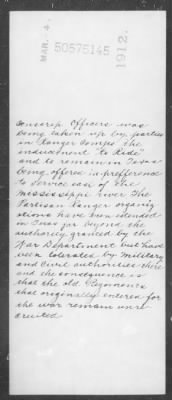 MAR. 4.
50575145
1912.
Conscrip Officers was
being taken up by parties
in Ranger Comps the
inducement "to Ride"
and to remain in Texas
being offered in preference
to service east of the
Mississippi river The
Partisan Ranger organiz
ations have been extended
in Texas far beyond the
authority granted by the
War Department but have
been tolerated by military
and Civil authorities there
and the consequence is
that the old Regiments
that originally entered for
the war remain unre
cruited